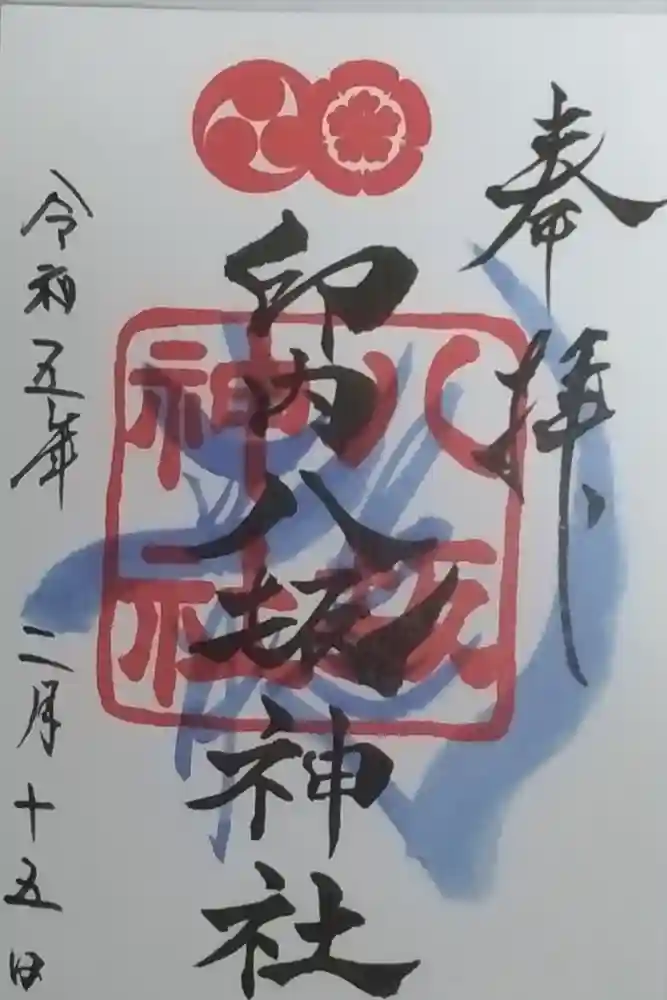 奉拝
印内八坂神社
八坂神社
令和五年二月十五日